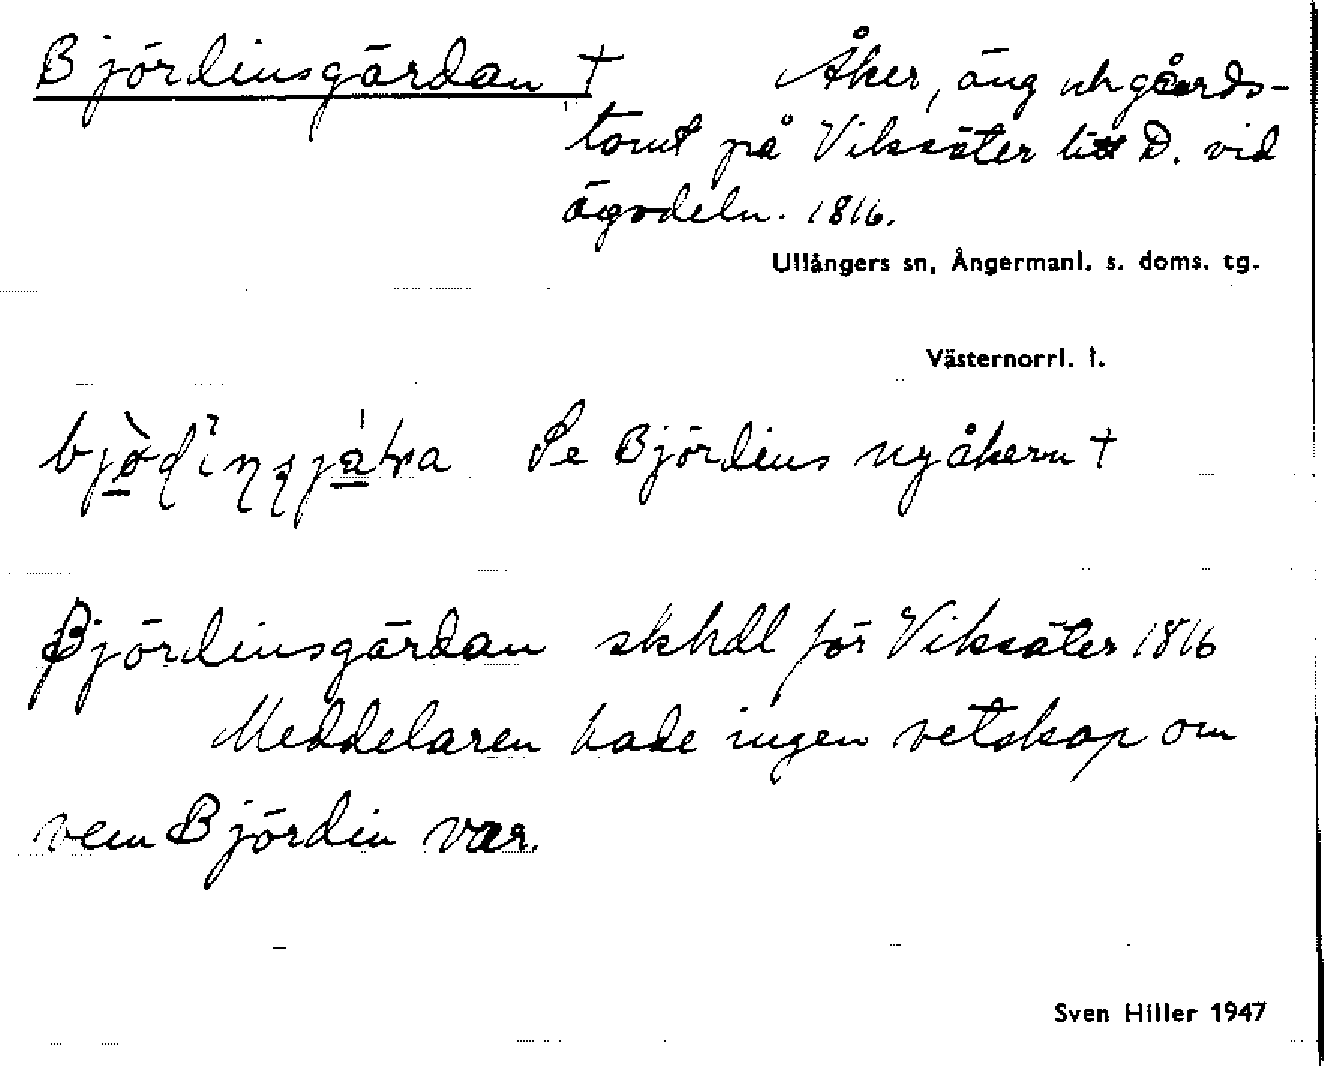 Björdinsgärdan † Åker, äng och gårds-
tomt på Viksäter litt D. vid
ägodeln. 1816.
Ullångers sn, Ångermanl. s. doms. tg.
Västernorrl. l.
Se Björdins nyåkern †
Björdinsgärdan skhdl för Viksäter 1816
Meddelaren hade ingen vetskap om
vem Björdin var.
Sven Hiller 1947